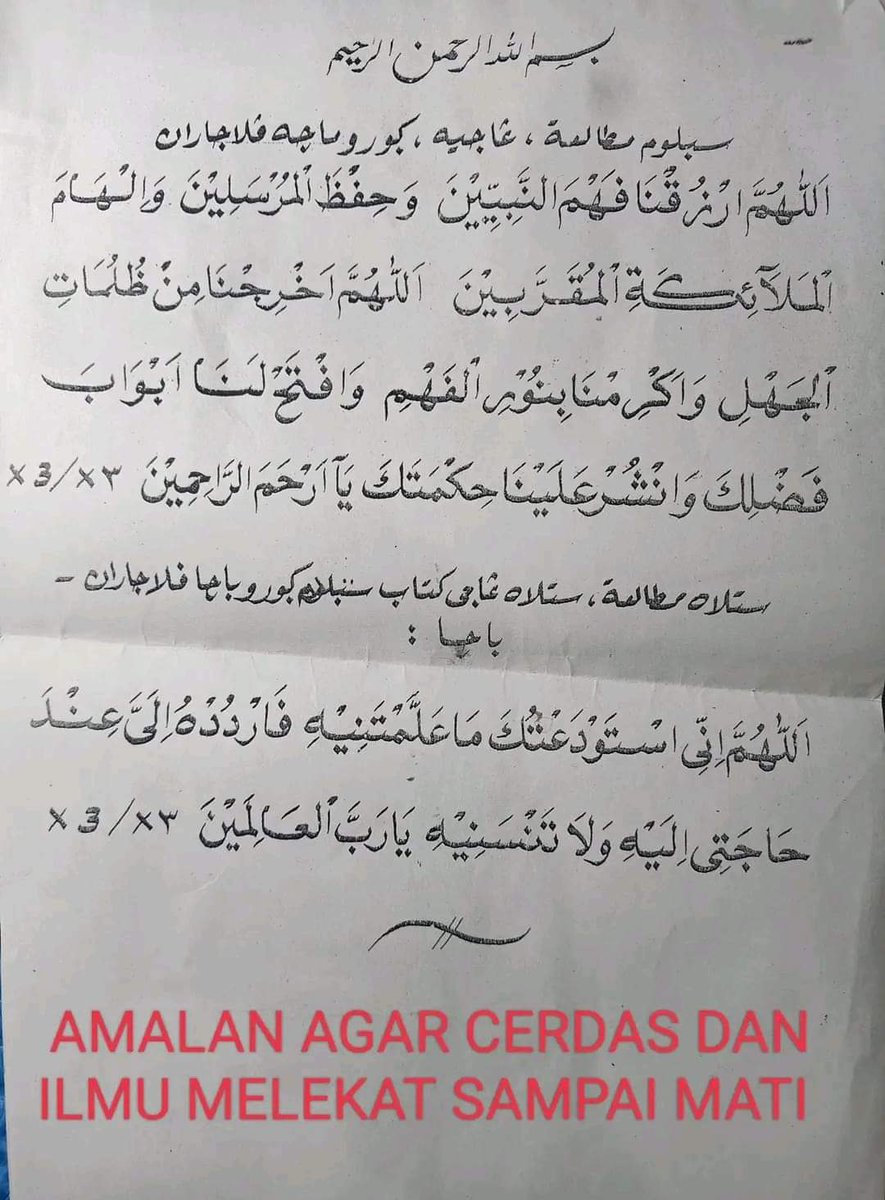 بسم الله الرحمن الرحيم
سبلوم مطالعة ، ڠاجيه ، ڬورو ماچه ڤلاجاران
اَللّٰهُمَّ ارْزُقْنَا فَهْمَ النَّبِيِّيْنَ وَحِفْظَ الْمُرْسَلِيْنَ وَاِلْهَامَ
الْمَلَآئِكَةِ الْمُقَرَّبِيْنَ اَللّٰهُمَّ اَخْرِجْنَا مِنْ ظُلُمَاتِ
الْجَهْلِ وَاَكْرِمْنَا بِنُوْرِ الْفَهْمِ وَافْتَحْ لَنَا اَبْوَابَ
فَضْلِكَ وَانْشُرْ عَلَيْنَا حِكْمَتَكَ يَآ اَرْحَمَ الرَّاحِمِيْنَ ×٣/× 3
ستلاه مطالعة ، ستلاه ڠاجى كتاب ڬورو باچا ڤلاجاران -
باچا :
اَللّٰهُمَّ اِنِّى اسْتَوْدَعْتُكَ مَا عَلَّمْتَنِيْهِ فَارْدُدْهُ اِلَىَّ عِنْدَ
حَاجَتِى اِلَيْهِ وَلَا تَنْسَنِيْهِ يَارَبَّ الْعَالَمَيْنَ ×٣/× 3
AMALAN AGAR CERDAS DAN
ILMU MELEKAT SAMPAI MATI